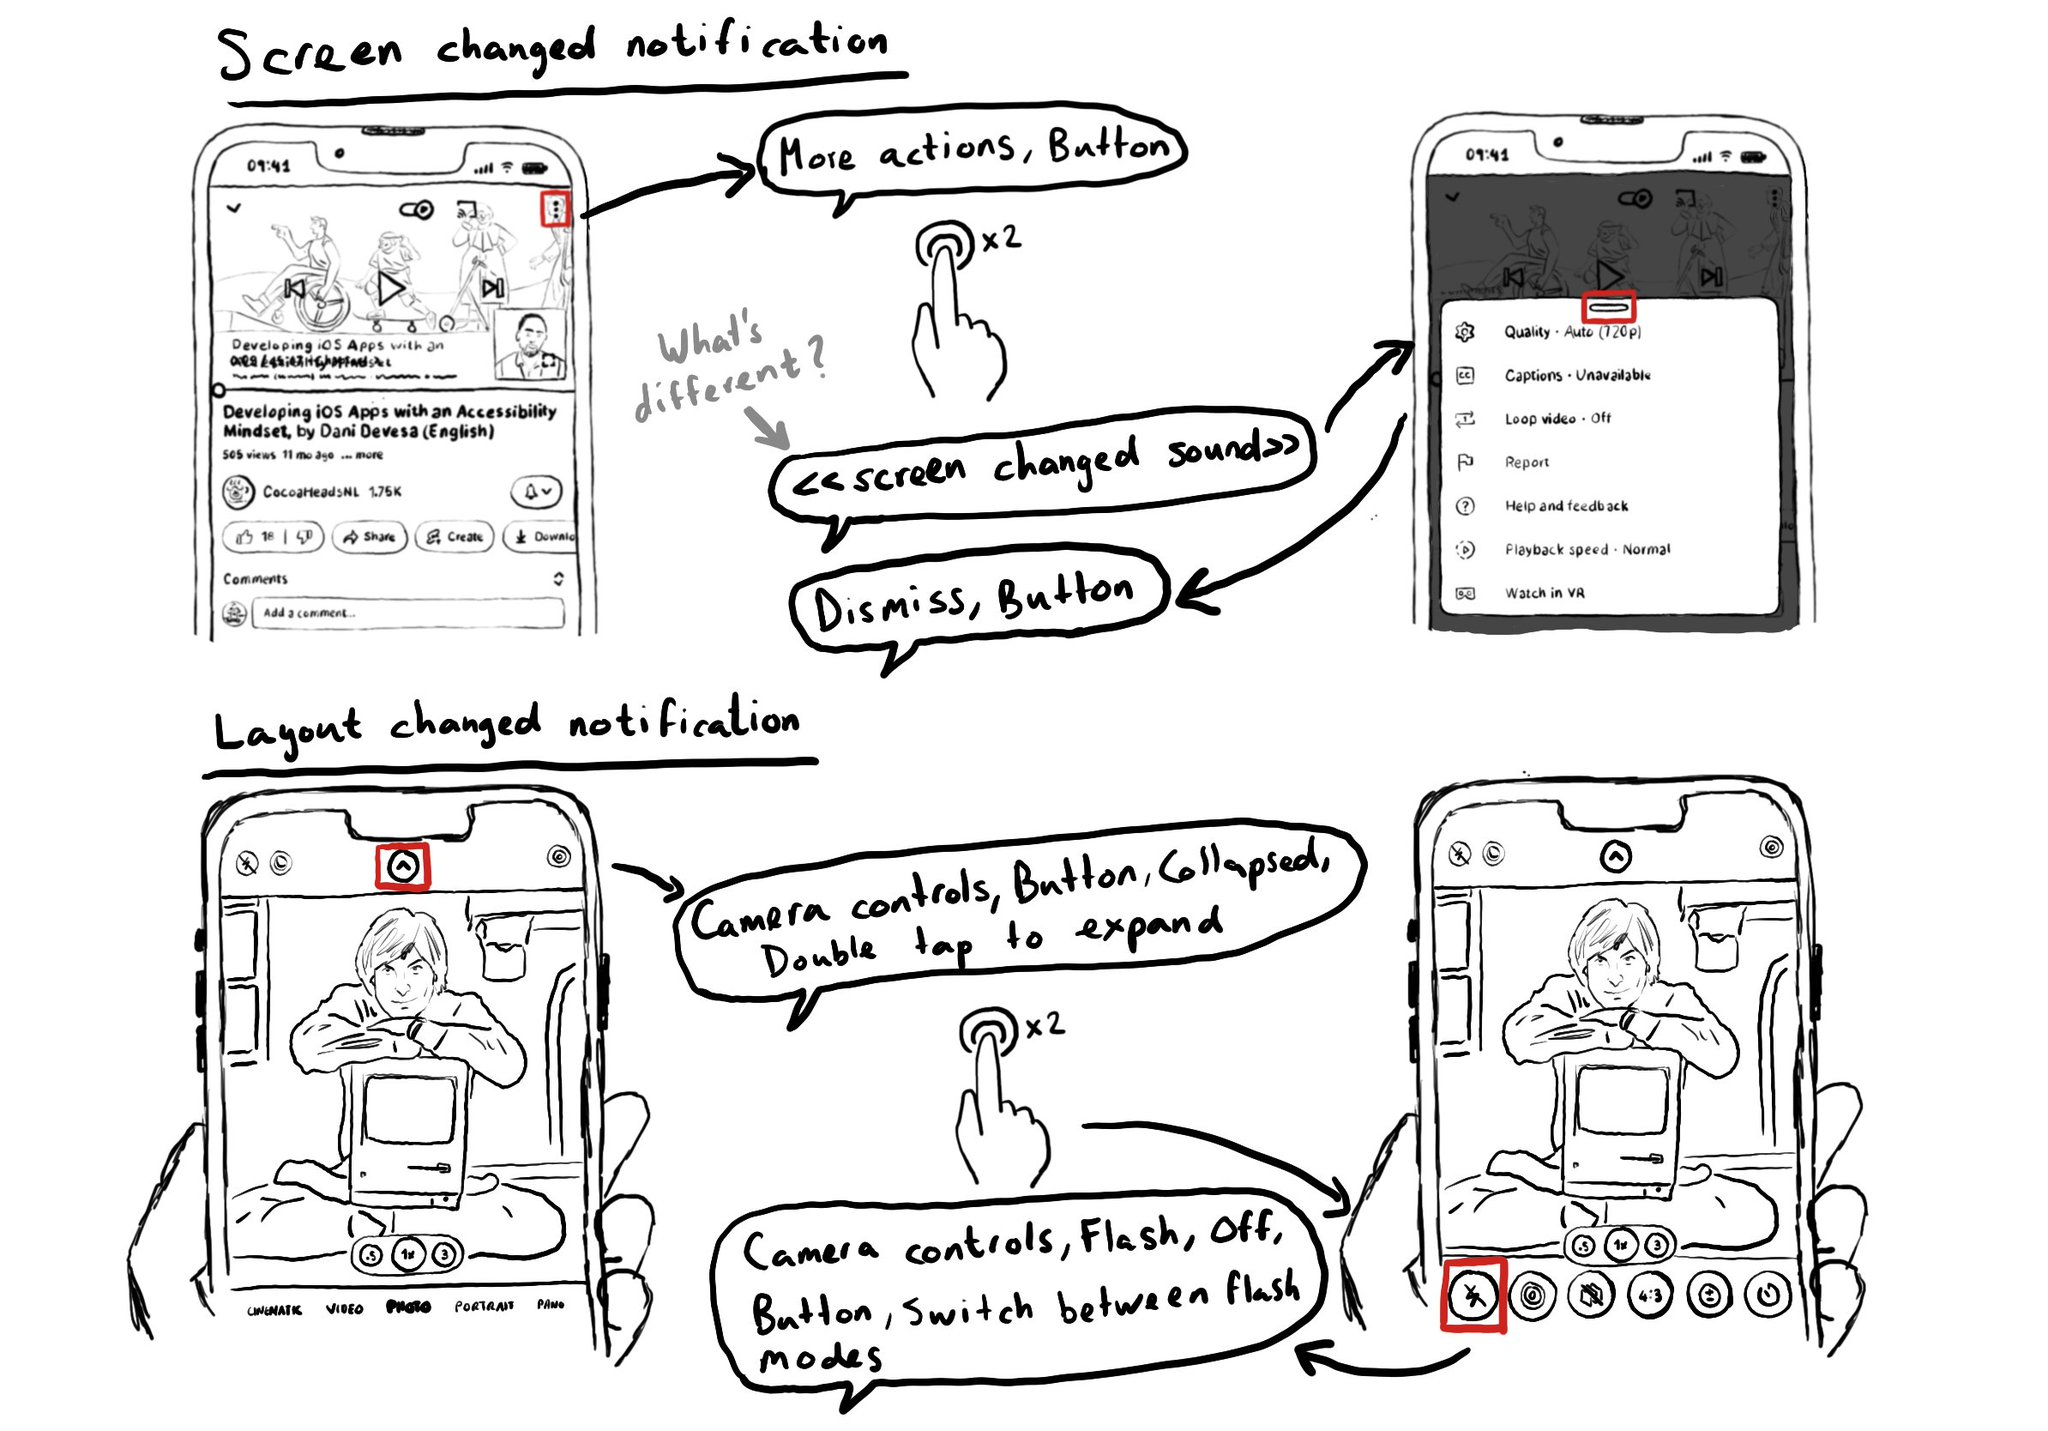 Screen changed notification
09:41
Developing iOS Apps with an
Developing iOS Apps with an Accessibility
Mindset, by Dani Devesa (English)
505 views 11 mo ago ... more
CocoaHeadsNL 1.75K
18 | Share Create Downlo
Comments
Add a comment...
More actions, Button
x2
What's
different?
<<screen changed sound>>
Dismiss, Button
09:41
Quality · Auto (720p)
CC Captions · Unavailable
Loop video · Off
Report
? Help and feedback
Playback speed · Normal
Watch in VR
Layout changed notification
.5 1x 3
CINEMATIC VIDEO PHOTO PORTRAIT PANO
Camera controls, Button, Collapsed,
Double tap to expand
x2
Camera controls, Flash, Off,
Button, Switch between flash
modes
.5 1x 3
4:3